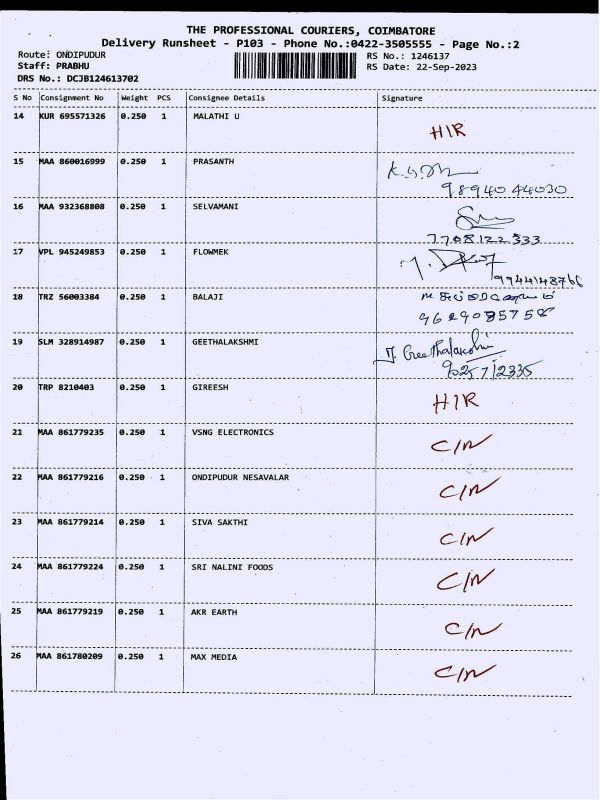 THE PROFESSIONAL COURIERS, COIMBATORE
Delivery Runsheet - P103 - Phone No.:0422-3505555 - Page No.:2
Route: ONDIPUDUR RS No.: 1246137
Staff: PRABHU RS Date: 22-Sep-2023
DRS No.: DCJB124613702
S No Consignment No Weight PCS Consignee Details Signature
14 KUR 695571326 0.250 1 MALATHI U
HIR
15 MAA 860016999 0.250 1 PRASANTH
98940 44030
16 MAA 932368808 0.250 1 SELVAMANI
7708122333
17 VPL 945249853 0.250 1 FLOWMEK
9944148766
18 TRZ 56003384 0.250 1 BALAJI
19 SLM 328914987 0.250 1 GEETHALAKSHMI
Geethalakshmi
9025712335
20 TRP 8210403 0.250 1 GIREESH
HIR
21 MAA 861779235 0.250 1 VSNG ELECTRONICS
C/N
22 MAA 861779216 0.250 1 ONDIPUDUR NESAVALAR
C/N
23 MAA 861779214 0.250 1 SIVA SAKTHI
C/N
24 MAA 861779224 0.250 1 SRI NALINI FOODS
C/N
25 MAA 861779219 0.250 1 AKR EARTH
C/N
26 MAA 861780209 0.250 1 MAX MEDIA
C/N